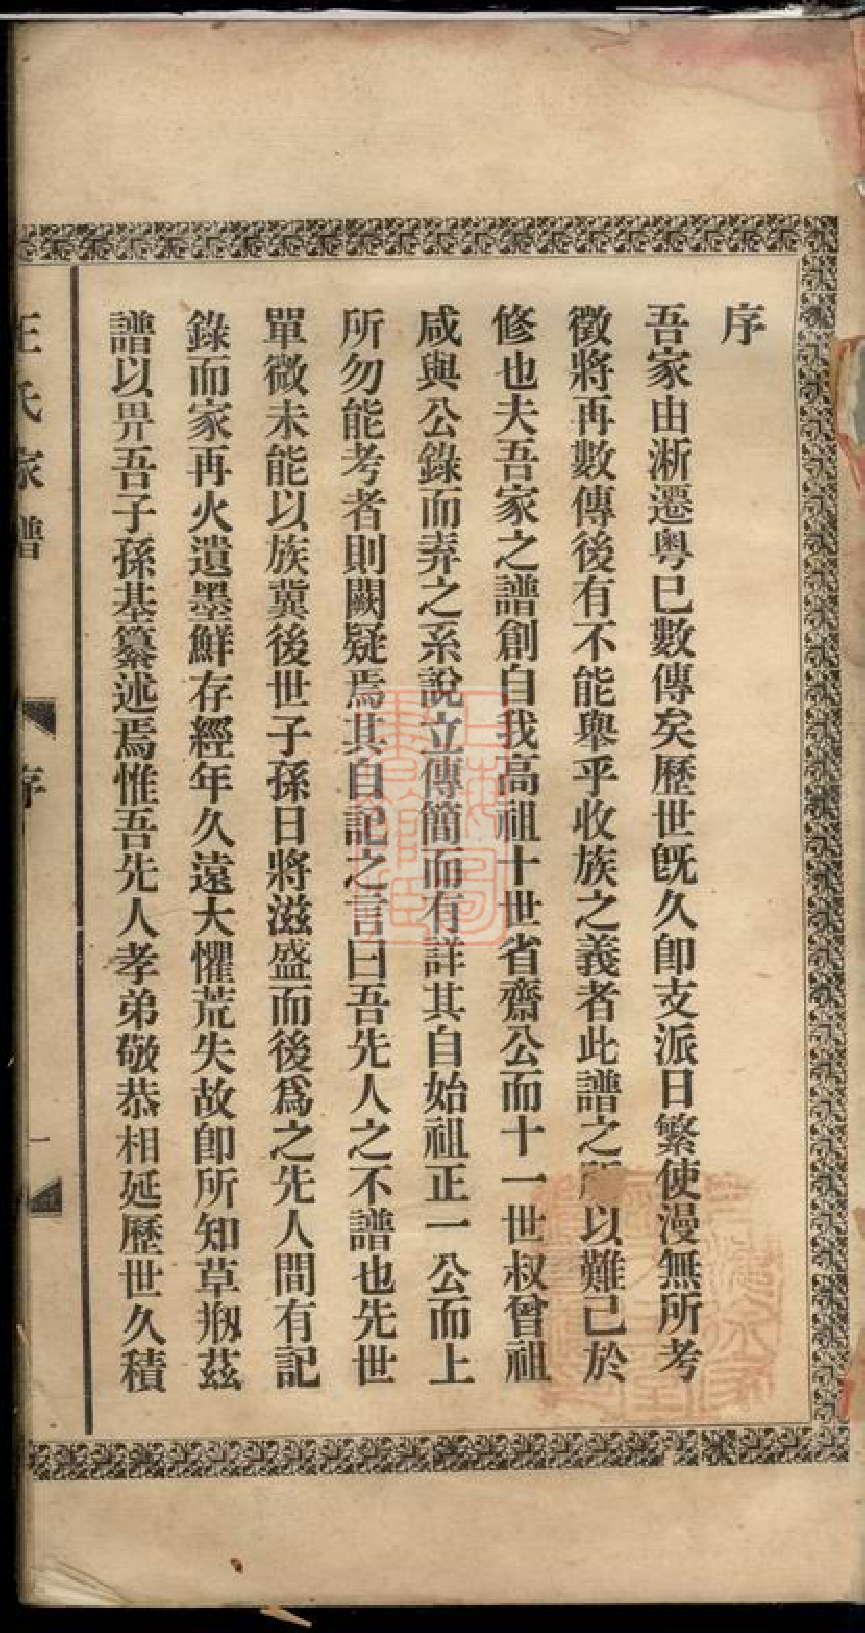 序
吾家由淅遷粤巳數傳矣歷世旣久卽支派日繁使漫無所考
徵將再數傳後有不能舉乎收族之義者此譜之所以難已於
修也夫吾家之譜創自我高祖十世省齋公而十一世叔曾祖
咸與公錄而弆之系說立傳簡而有詳其自始祖正一公而上
所勿能考者則闕疑焉其自記之言曰吾先人之不譜也先世
單微未能以族冀後世子孫日將滋盛而後爲之先人間有記
錄而家再火遺墨鮮存經年久遠大懼荒失故卽所知草剏茲
譜以畀吾子孫基纂述焉惟吾先人孝弟敬恭相延歷世久積
汪氏家譜
序
一